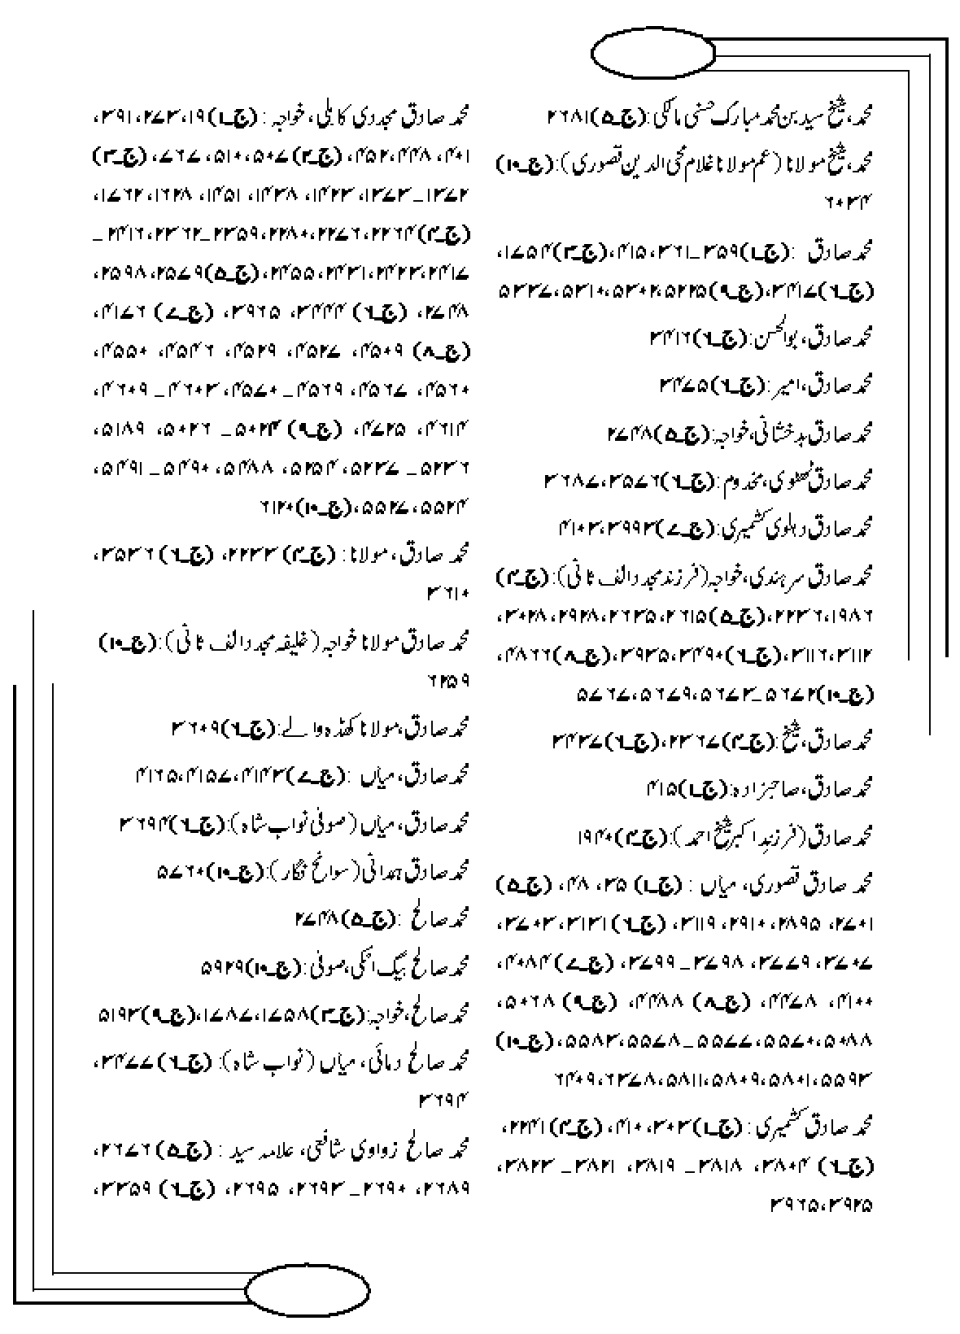 محمد، شیخ سید بن محمد مبارک حسنی مالکی:(ج۔۵)۲۶۸۱
محمد، شیخ مولانا (عم مولانا غلام محی الدین قصوری):(ج۔۱۰)
۶۰۳۴
محمد صادق :(ج۔۱)۳۵۹۔۳۶۱، ۴۱۵،(ج۔۳)۱۷۵۴،
(ج۔۶)۳۴۱۷،(ج۔۹)۵۲۲۵، ۵۳۰۲، ۵۳۱۰، ۵۳۳۷
محمد صادق، بوالحسن:(ج۔۶)۳۴۱۶
محمد صادق، امیر:(ج۔۶)۳۴۷۵
محمد صادق بدخشانی، خواجہ:(ج۔۵)۲۷۴۸
محمد صادق ٹھٹھوی، مخدوم:(ج۔۶)۳۵۷۶، ۳۶۸۷
محمد صادق دہلوی کشمیری:(ج۔۷)۳۹۹۳، ۴۱۰۳
محمد صادق سرہندی، خواجہ(فرزند مجدد الف ثانی):(ج۔۴)
۱۹۸۶، ۲۲۳۶،(ج۔۵)۲۶۱۵، ۲۶۳۵، ۲۹۲۸، ۳۰۲۸،
۳۱۱۲، ۳۱۱۶،(ج۔۶)۳۴۹۰، ۳۹۳۵،(ج۔۸)۴۸۶۶،
(ج۔۱۰)۵۶۷۲۔۵۶۷۳، ۵۶۷۹، ۵۷۶۷
محمد صادق، شیخ:(ج۔۴)۲۳۶۷،(ج۔۶)۳۴۳۷
محمد صادق، صاحبزادہ:(ج۔۱)۴۱۵
محمد صادق(فرزندِ اکبر شیخ احمد):(ج۔۴)۱۹۴۰
محمد صادق قصوری، میاں :(ج۔۱) ۳۵، ۴۸، (ج۔۵)
۲۷۰۱، ۲۸۹۵، ۲۹۱۰، ۳۱۱۹، (ج۔۶) ۳۱۳۱، ۳۷۰۳،
۳۷۰۷، ۳۷۷۹، ۳۷۹۸۔۳۷۹۹، (ج۔۷) ۴۰۸۴،
۴۱۰۰، ۴۴۷۸، (ج۔۸) ۴۴۸۸، (ج۔۹) ۵۰۶۸،
۵۰۸۸، ۵۵۷۰، ۵۵۷۷۔۵۵۷۸، ۵۵۸۳، (ج۔۱۰)
۵۵۹۳، ۵۸۰۱، ۵۸۰۹، ۵۸۱۱، ۶۳۷۸، ۶۴۰۹
محمد صادق کشمیری:(ج۔۱)۳۰۳، ۴۱۰،(ج۔۴)۲۲۴۱،
(ج۔۶) ۳۸۰۴، ۳۸۱۸۔ ۳۸۱۹، ۳۸۲۱۔ ۳۸۲۳،
۳۹۲۵، ۳۹۶۵
محمد صادق مجددی کابلی، خواجہ:(ج۔۱)۱۹، ۲۷۳، ۳۹۱،
۴۰۱، ۴۴۸، ۴۵۲، (ج۔۲)۵۰۷، ۵۱۰، ۷۶۷، (ج۔۳)
۱۳۷۲۔۱۳۷۳، ۱۴۲۳، ۱۴۳۸، ۱۴۵۱، ۱۶۲۸، ۱۷۶۲،
(ج۔۴)۲۲۶۴، ۲۲۷۶، ۲۲۸۰، ۲۳۵۹۔۲۳۶۲، ۲۴۱۶۔
۲۴۱۷، ۲۴۲۳، ۲۴۳۱، ۲۴۵۵،(ج۔۵)۲۵۷۹، ۲۵۹۸،
۲۷۴۸، (ج۔۶) ۳۴۴۴، ۳۹۶۵، (ج۔۷) ۴۱۷۶،
(ج۔۸) ۴۵۰۹، ۴۵۲۷، ۴۵۲۹، ۴۵۴۶، ۴۵۵۰،
۴۵۶۰، ۴۵۶۷، ۴۵۶۹۔ ۴۵۷۰، ۴۶۰۳۔ ۴۶۰۹،
۴۶۱۴، ۴۷۲۵، (ج۔۹) ۵۰۲۴۔ ۵۰۲۶، ۵۱۸۹،
۵۲۳۶۔ ۵۲۳۷، ۵۲۵۴، ۵۴۸۸، ۵۴۹۰۔ ۵۴۹۱،
۵۵۲۴، ۵۵۲۷،(ج۔۱۰)۶۱۲۰
محمد صادق، مولانا:(ج۔۴) ۲۲۳۳، (ج۔۶) ۳۵۳۶،
۳۶۱۰
محمد صادق مولانا خواجہ(خلیفہ مجدد الف ثانی):(ج۔۱۰)
۶۲۵۹
محمد صادق، مولانا کھڈہ والے:(ج۔۶)۳۶۰۹
محمد صادق، میاں :(ج۔۷)۴۱۴۳، ۴۱۵۷، ۴۱۶۵
محمد صادق، میاں (صوفی نواب شاہ):(ج۔۶)۳۶۹۴
محمد صادق ہمدانی(سوانح نگار):(ج۔۱۰)۵۷۶۰
محمد صالح :(ج۔۵)۲۷۴۸
محمد صالح بیگ اتکی، صوفی:(ج۔۱۰)۵۹۲۹
محمد صالح، خواجہ:(ج۔۳)۱۷۵۸، ۱۷۸۷،(ج۔۹)۵۱۹۳
محمد صالح دمائی، میاں (نواب شاہ):(ج۔۶)۳۴۷۷،
۳۶۹۴
محمد صالح زواوی شافعی، علامہ سید :(ج۔۵)۲۶۷۶،
۲۶۸۹، ۲۶۹۰۔ ۲۶۹۳، ۲۶۹۵، (ج۔۶) ۳۳۵۹،